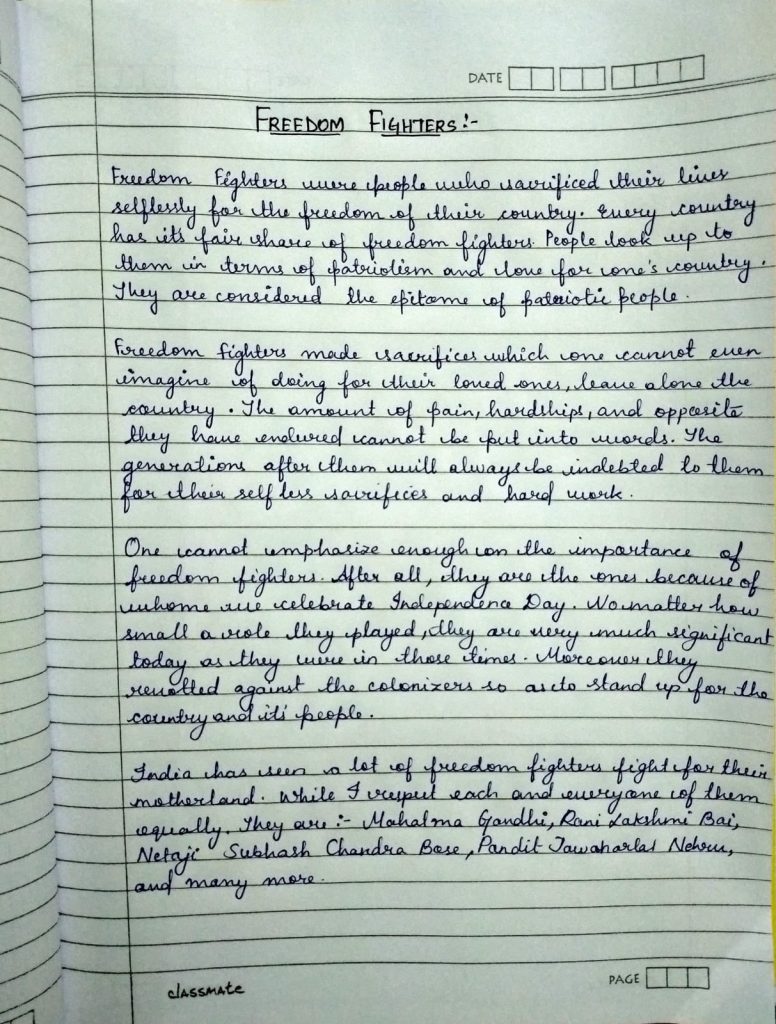 DATE
FREEDOM FIGHTERS:-
Freedom Fighters were people who sacrificed their lives
selflessly for the freedom of their country. Every country
has its fair share of freedom fighters. People look up to
them in terms of patriotism and love for one's country.
They are considered the epitome of patriotic people.
Freedom fighters made sacrifices which one cannot even
imagine of doing for their loved ones, leave alone the
country. The amount of pain, hardships, and opposite
they have endured cannot be put into words. The
generations after them will always be indebted to them
for their selfless sacrifices and hard work.
One cannot emphasize enough on the importance of
freedom fighters. After all, they are the ones because of
whome we celebrate Independence Day. No matter how
small a role they played, they are very much significant
today as they were in those times. Moreover they
revolted against the colonizers so as to stand up for the
country and its people.
India has seen a lot of freedom fighters fight for their
motherland. While I respect each and everyone of them
equally. They are :- Mahatma Gandhi, Rani Lakshmi Bai,
Netaji Subhash Chandra Bose, Pandit Jawaharlal Nehru,
and many more.
classmate
PAGE